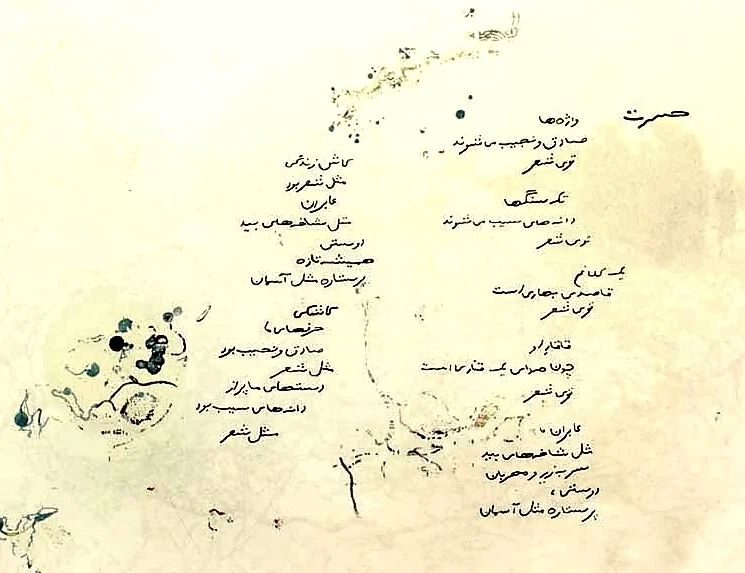 حسرت
واژه‌ها
صادق و نجیب می‌شوند
توی شعر
تکه سنگها
دانه‌های سیب می‌شوند
توی شعر
یک کلاغ
قاصدی بهاری است
توی شعر
قارقار او
چون صدای یک قناری است
توی شعر
عابران
مثل شاخه‌های بید
سر به زیر و مهربان
دوستی،
پر ستاره مثل آسمان
کاش زندگی
مثل شعر بود
عابران
مثل شاخه‌های بید
دوستی
همیشه تازه
پر ستاره مثل آسمان
کاشکی
حرفهای ما
صادق و نجیب بود
مثل شعر
دستهای ما پر از
دانه‌های سیب بود
مثل شعر